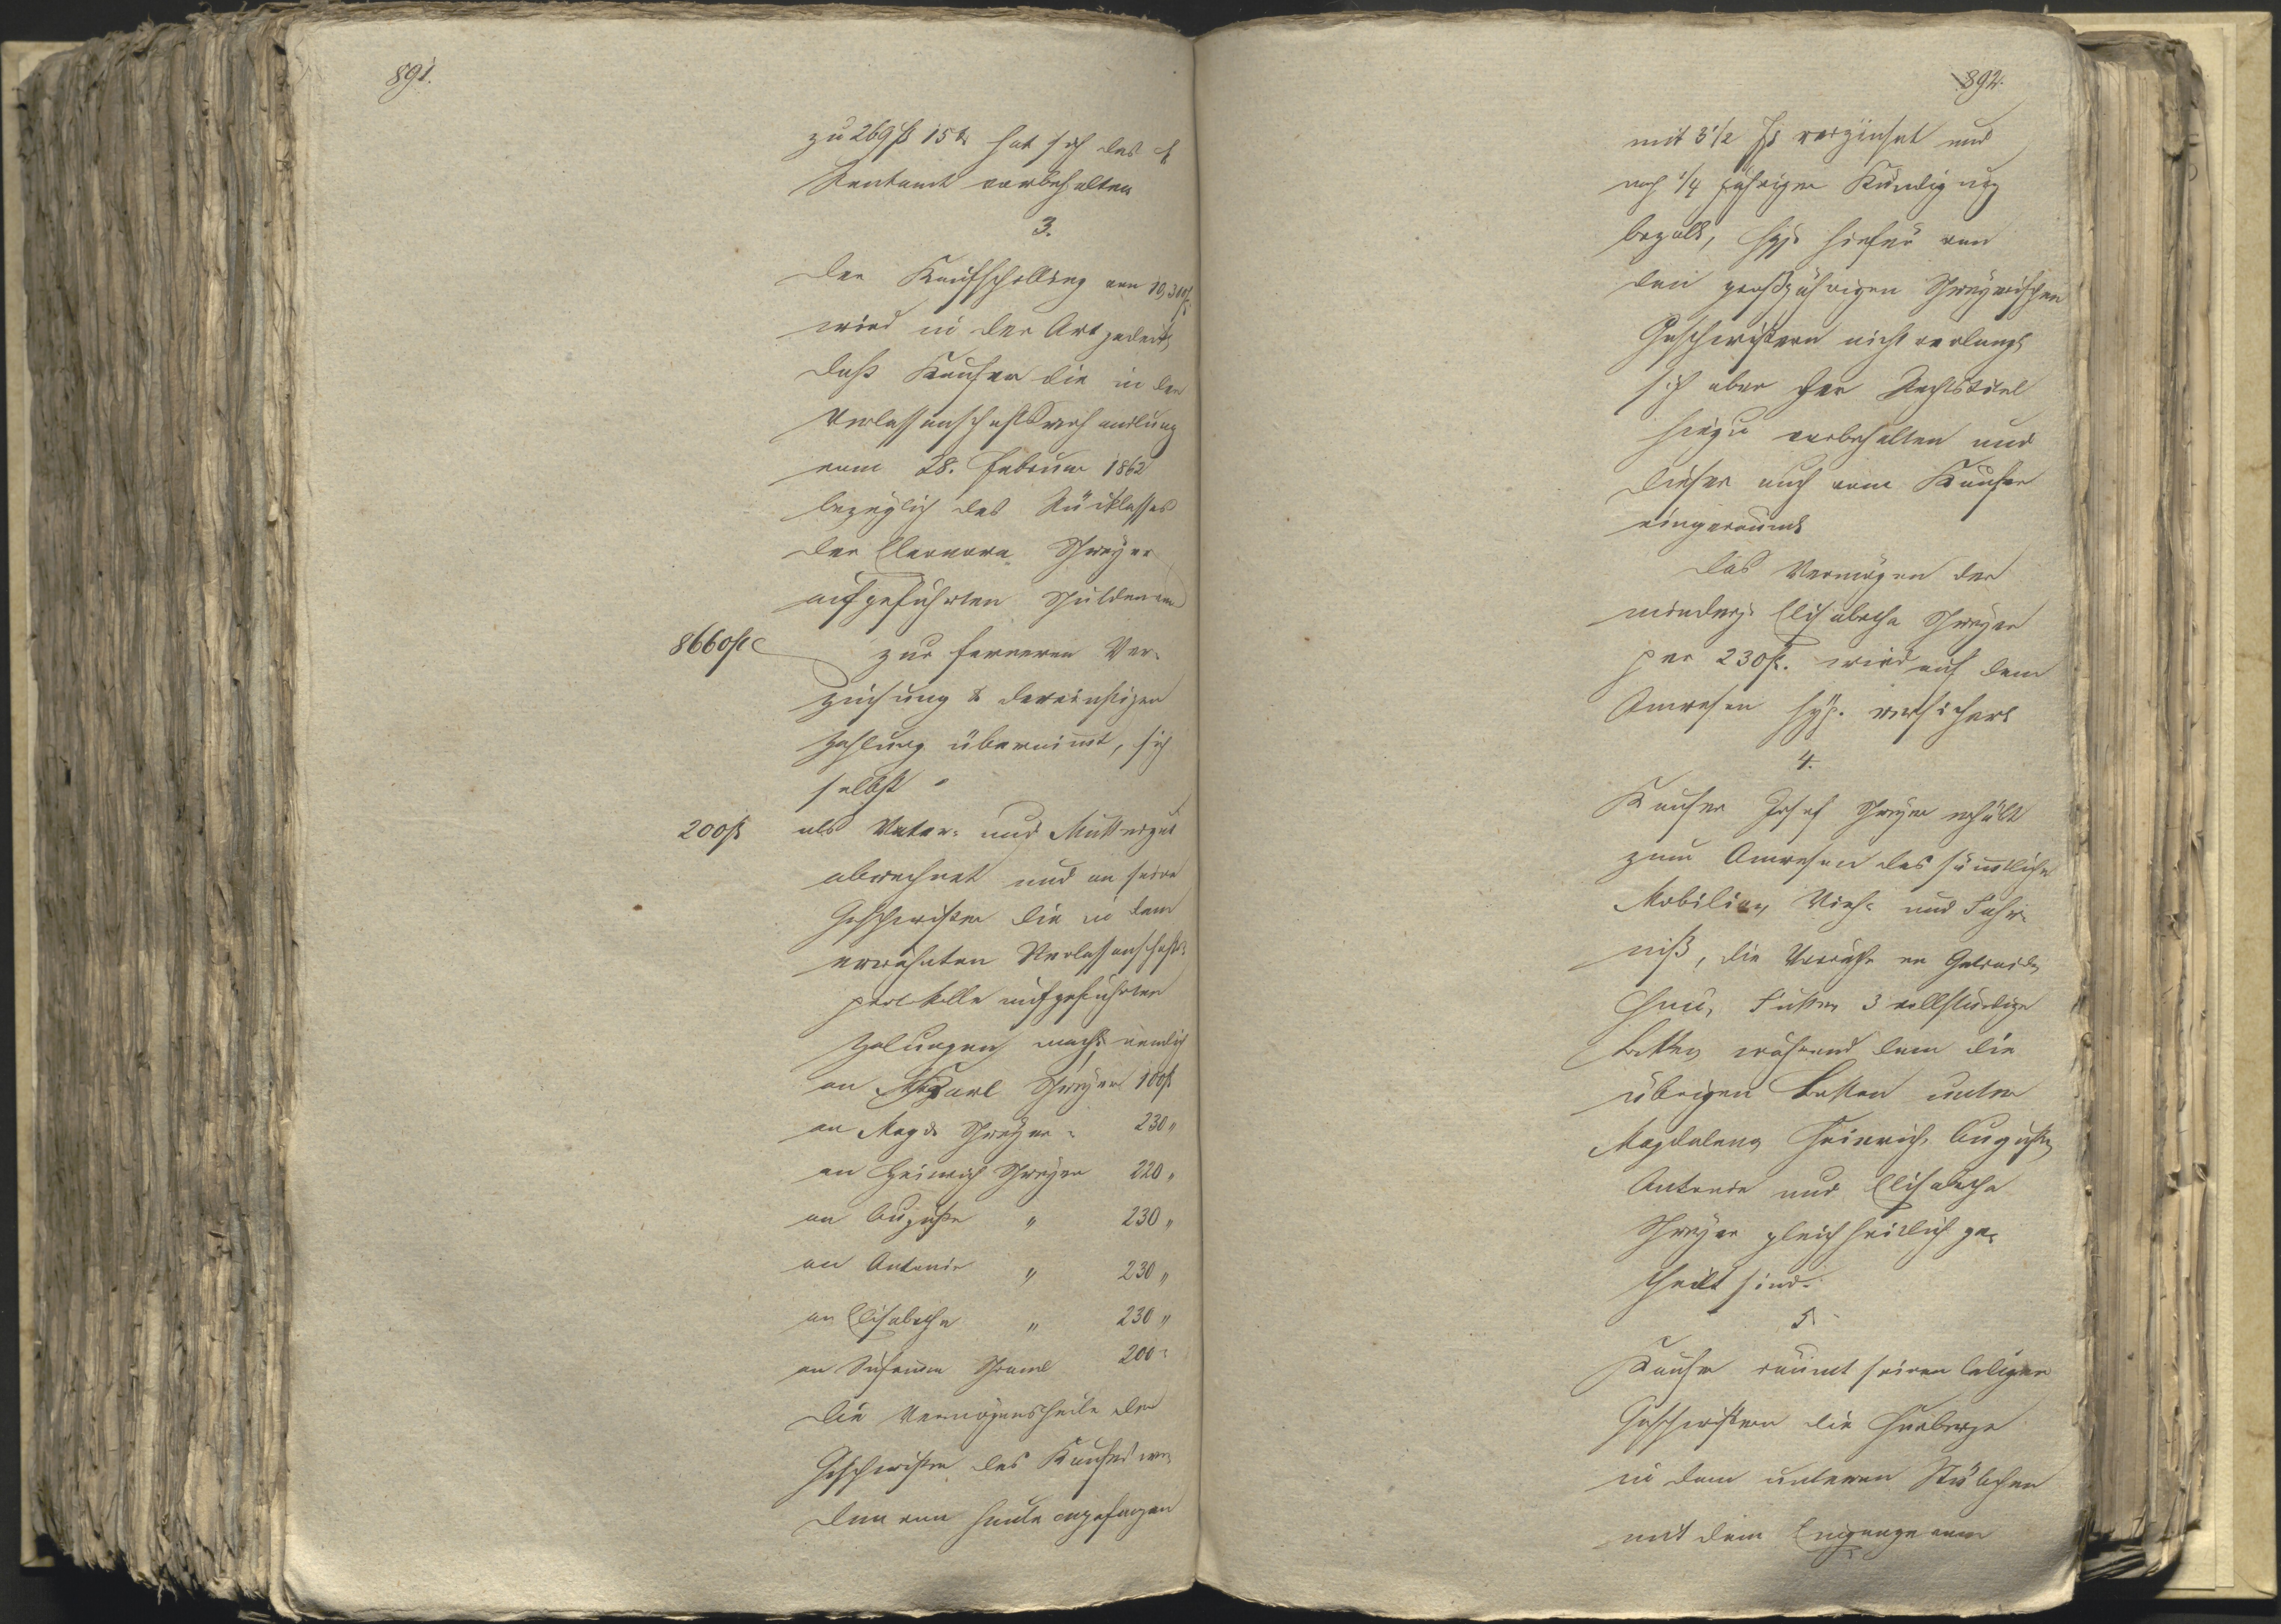 891.
zu 269 fl 15 x hat sich das k
Rentamt vorbehalten
3.
Der Kaufschilling von 10,300 fl
wird in der Art gedeckt,
daß Käufer die in der
Verlassenschaftsverhandlung
vom 28. Februar 1862
bezüglich des Rücklasses
der Eleonora Schreyer
aufgeführten Schulden von
8660 fl zur ferneren Ver-
zinsung & dereinstigen
Zahlung übernimmt, sich
selbst
200 fl als Vater- und Muttergut
abrechnet und an seine
Geschwister die in dem
erwähnten Verlassenschafts-
protokolle aufgeführten
Zalungen macht, nemlich
an Karl Schreyer 100 fl
an Magd. Schreyer 230 "
an Heinrich Schreyer 220 "
an Auguste " 230 "
an Antonie " 230 "
an Elisabetha " 230 "
an Susanna 200 "
Die Vermögenstheile der
Geschwister des Käufers wer-
den von heute angefangen
892.
mit 3 1/2 % verzinset und
nach 1/4 jähriger Kündigung
bezalt, Hyp. hiefür von
den großjährigen Schreyerischen
Geschwistern nicht verlangt
sich aber der Rechtstitel
hiezu vorbehalten und
dieser auch vom Käufer
eingeräumt
Das Vermögen der
minderj. Elisabetha Schreyer
per 230 fl. wird auf dem
Anwesen hyp. versichert
4.
Käufer Josef Schreyer erhält
zum Anwesen das sämmtliche
Mobiliar, Vieh- und Fahr-
niß, die Vorräthe an Getreide,
Heu, Futter, 3 vollständige
Betten, während dem die
übrigen Betten unter
Magdalena, Heinrich, Auguste,
Antonie und Elisabetha
Schreyer gleichheitlich ge-
theilt sind.
5.
Käufer räumt seinen ledigen
Geschwistern die Herberge
in dem unteren Stübchen
mit dem Eingange vom